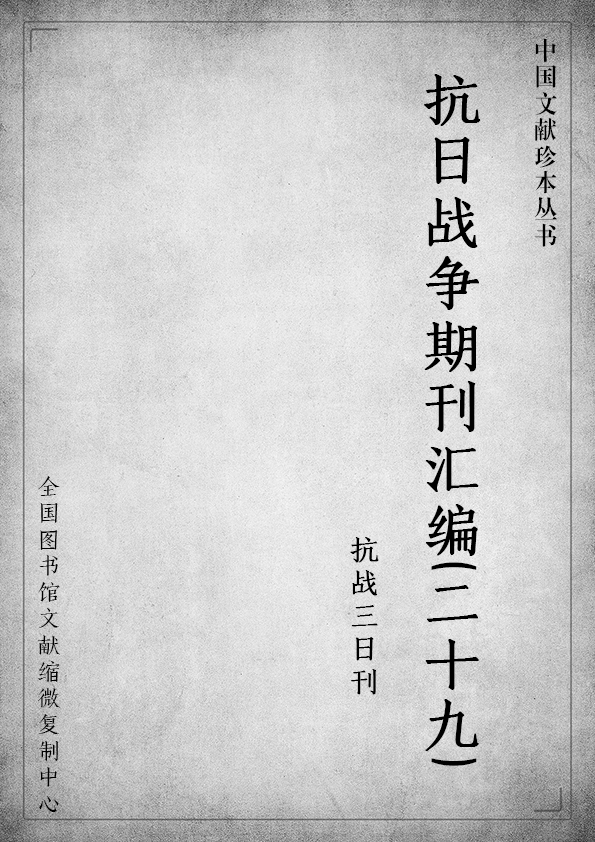 中国文献珍本丛书
抗日战争期刊汇编(二十九)
抗战三日刊
全国图书馆文献缩微复制中心